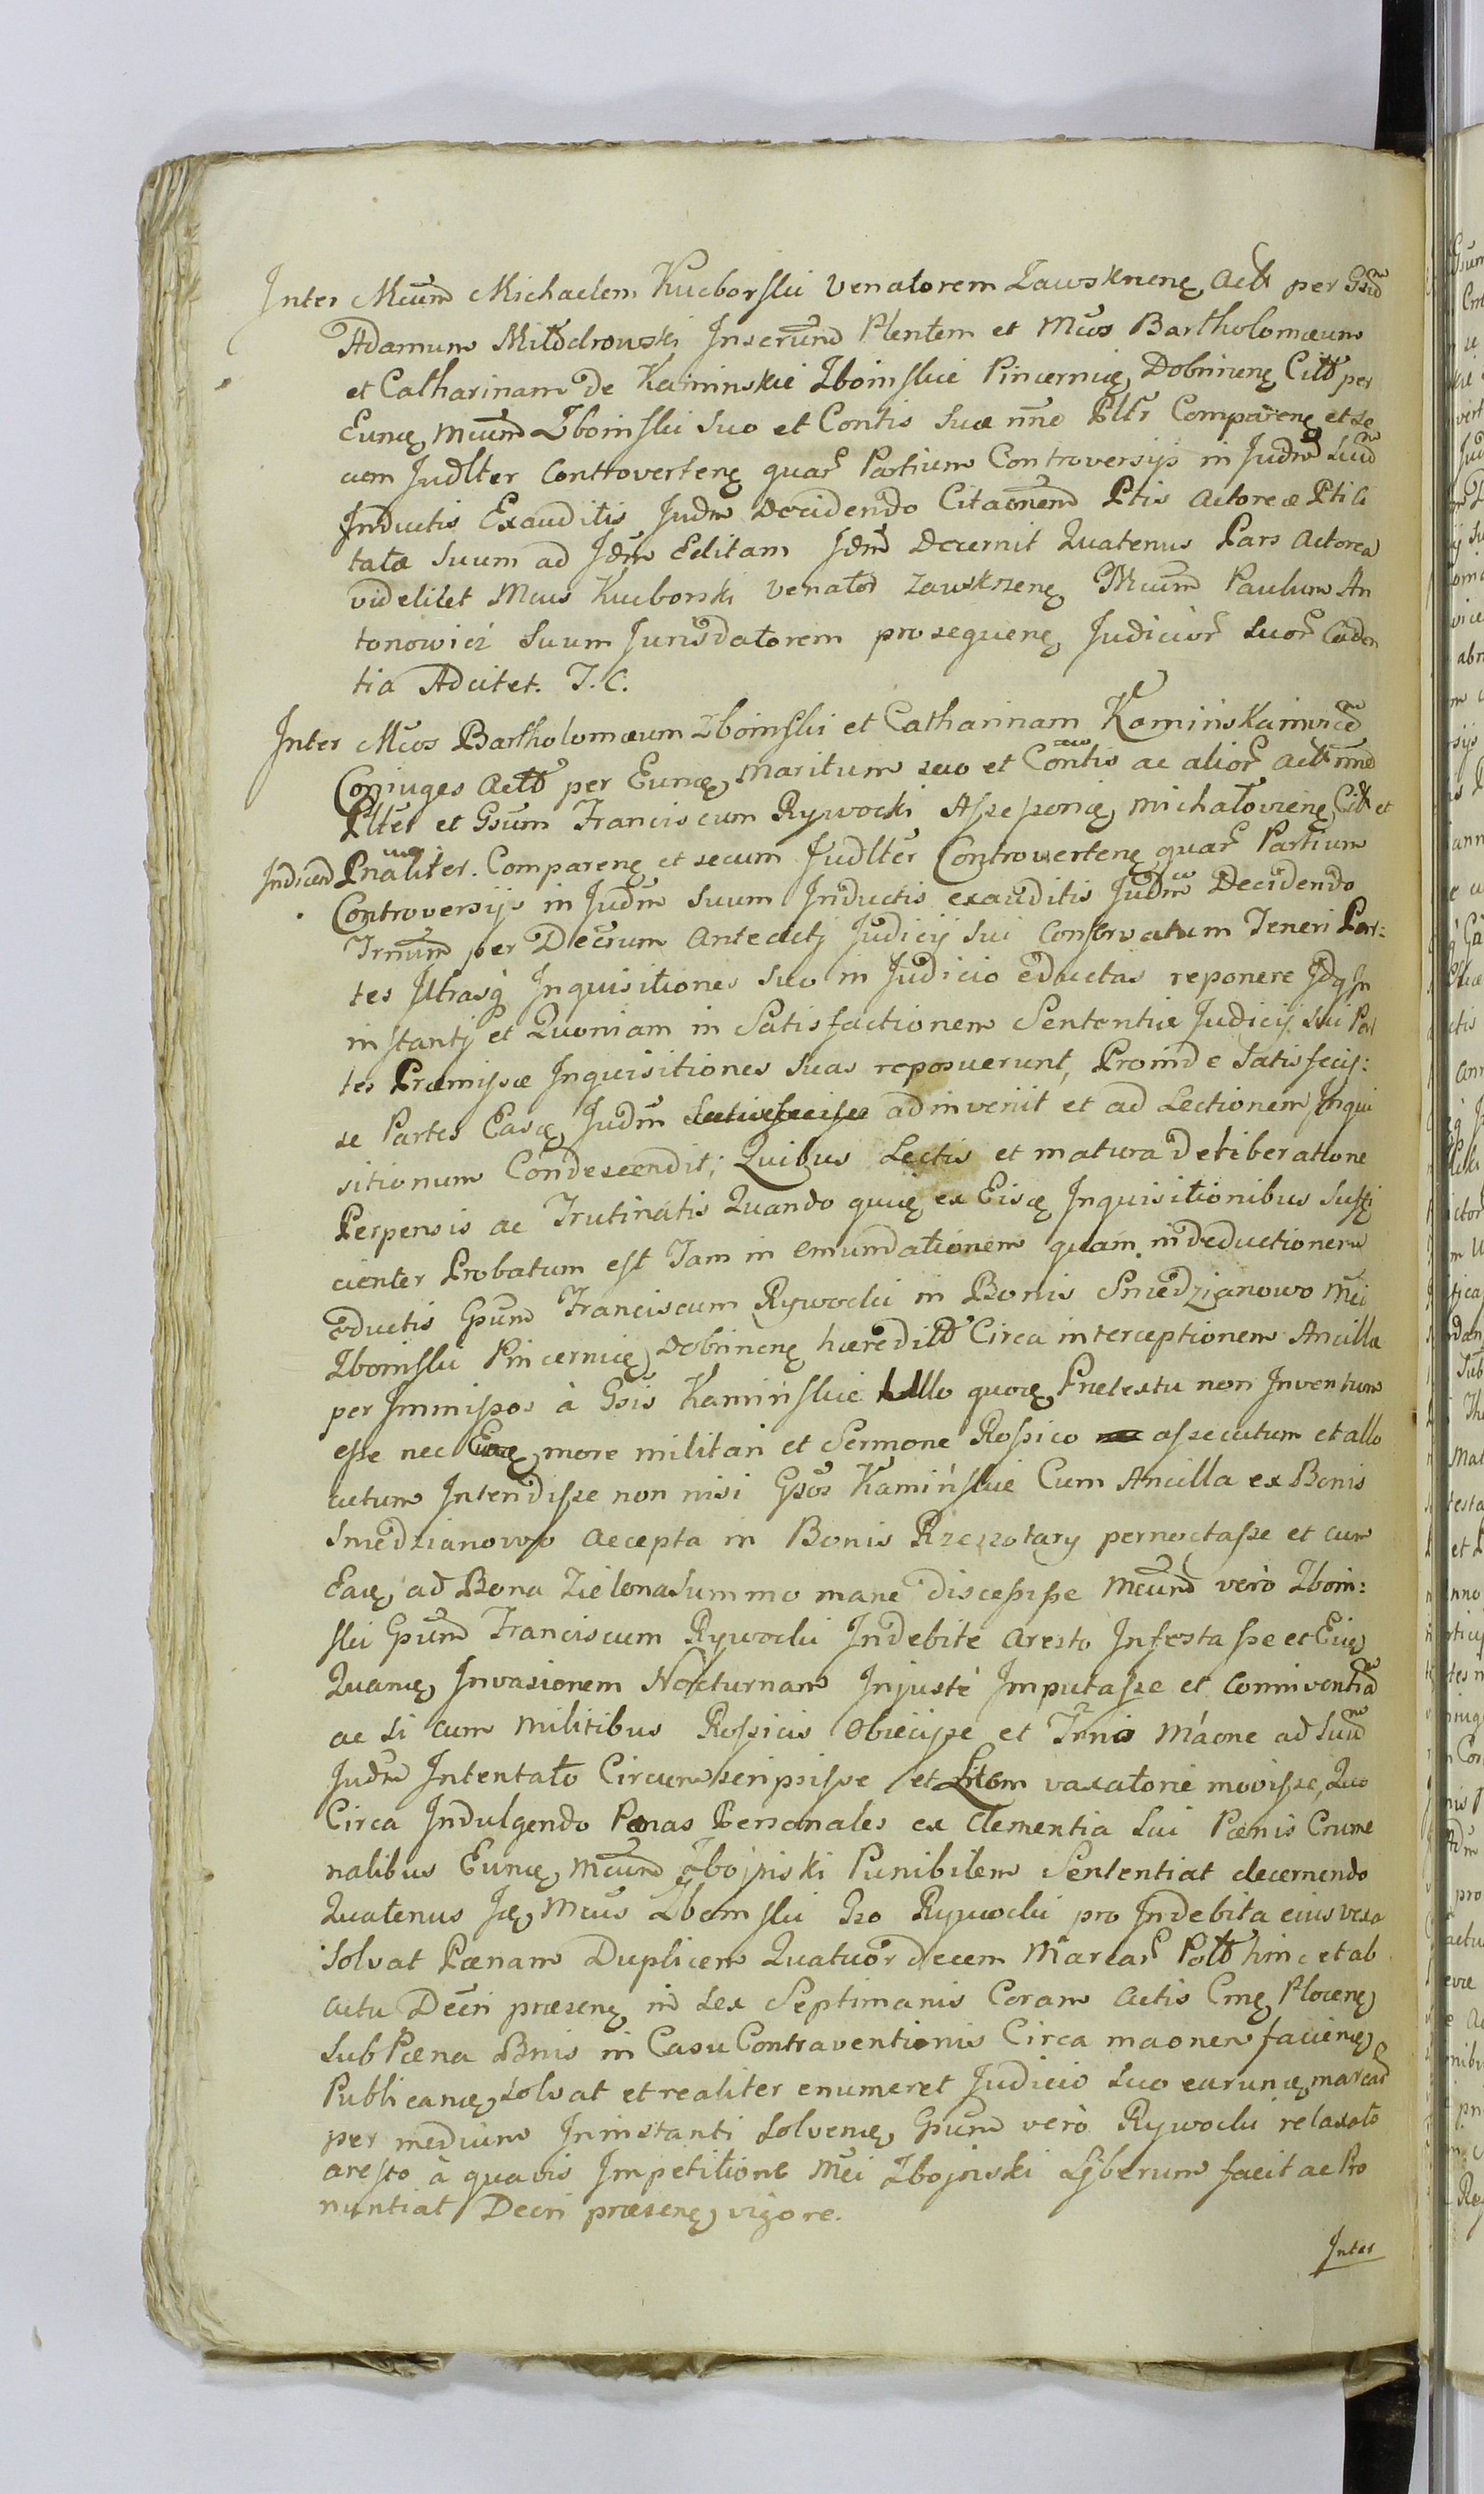 Inter Mcum Michaelem Kucborski Venatorem Zawskrnen. Actt per Gsum
Adamum Miłodrowski Inscrum Plentem et Mcos Bartholomæum
et Catharinam De Kaminskie Zboinskie Pincernię Dobrinen. Citt per
Eunę Mcum Zboinski Suo et Contis Suæ nne Pltr Comparenę et se
cum Judlter Controvertenę quar Partium Controversijs in Judm Suum
Inductis Exauditis Judm Decidendo Citaonem Ptis Actoreæ Pti Ci
tatæ Suum ad Jdm Editam Jdm Decernit Quatenus Pars Actorea
videlicet Mcus Kucborski Venator Zawskrzenę Mcum Paulum An
tonowicz Suum Jurisdatorem prosequenę Judicior Suor Caden
tia Adcitet. I. C.
Inter Mcos Bartholomæum Zboinski et Catharinam Kaminska invice
Coniuges Actt per Eunę Maritum suo et Contis ac alior Actt nne
Plter et Gsum Franciscum Rywocki Assessorię Michałovienę Citt et
Indicend Pnaliter. Comparenę et secum Judlter Controvertenę quar Partium
Controversijs in Judm Suum Inductis exauditis Judm Decidendo
Trnum per Decrum Anteacti Judicij Sui Conservatum Teneri Par:
tes Utrasq Inquisitiones Suo in Judicio eductas reponere Jdq In
instanti et Quoniam in Satisfactionem Sententiæ Judicij Sui Par
tes Præmissæ Inquisitiones Suas reposuerunt, Proinde Satisfecis:
se Partes Easę Judm adinvenit et ad Lectionem Inqui
sitionum Condescendit; Quibus Lectis et matura Deliberatione
Perpensis ac Trutinatis Quando quię ex Eisę Inquisitionibus Suffi
cienter Probatum est Tam in emundationem quam in deductionem
eductis Gsum Franciscum Rywocki in Bonis Smiedzianowo Mci
Zboinski Pincernię Dobrinenę hæreditt Circa interceptionem Ancillæ
per Immissos à Gsis Kaminskie Ullo quoę Prætextu non Inventum
esse nec Eaę more militari et Sermone Rossico assecutum et allo
cutum Intendisse non nisi Gsos Kamińskie Cum Ancilla ex Bonis
Smedzianowo accepta in Bonis Rzeszotary pernoctasse et cum
Eaę ad Bona Zielona Summo mane discessisse Mcum verò Zboin:
ski Gsum Franciscum Rywocki Indebite aresto Infestasse et Eię
Quamę Invasionem Nocturnam Injustè Imputasse et Conniventia
ac si cum Militibus Rossicis Obiecisse et Trnis Máone ad Suum
Judm Intentato Circumscripsisse et Litem vaxatorie movisse, Quo
Circa Indulgendo Pænas Personales ex Clementia Sui Pænis Crume
nalibus Eunę Mcum Zbojnski Punibilem Sententiat decernendo
Quatenus Ję Mcus Zboinski Gso Rywocki pro Indebita eius vexa
Solvat Pænam Duplicem Quatuor decem Marcar Poltt hinc et ab
actu Decri præsenę in Sex Septimanis Coram Actis Cmę Plocenę
Sub Pæna Bnis in Casu Contraventionis Circa maonem faciendę
Publicanę Solvat et realiter enumeret Judicio Suo earunę marcar
per medium Ininstanti Solvenę Gsum verò Rywocki relaxato
aresto à quavis Impetitione Mci Zbojnski Lyberum facit ac Pro
nuntiat Decri præsenę vigore.
Inter